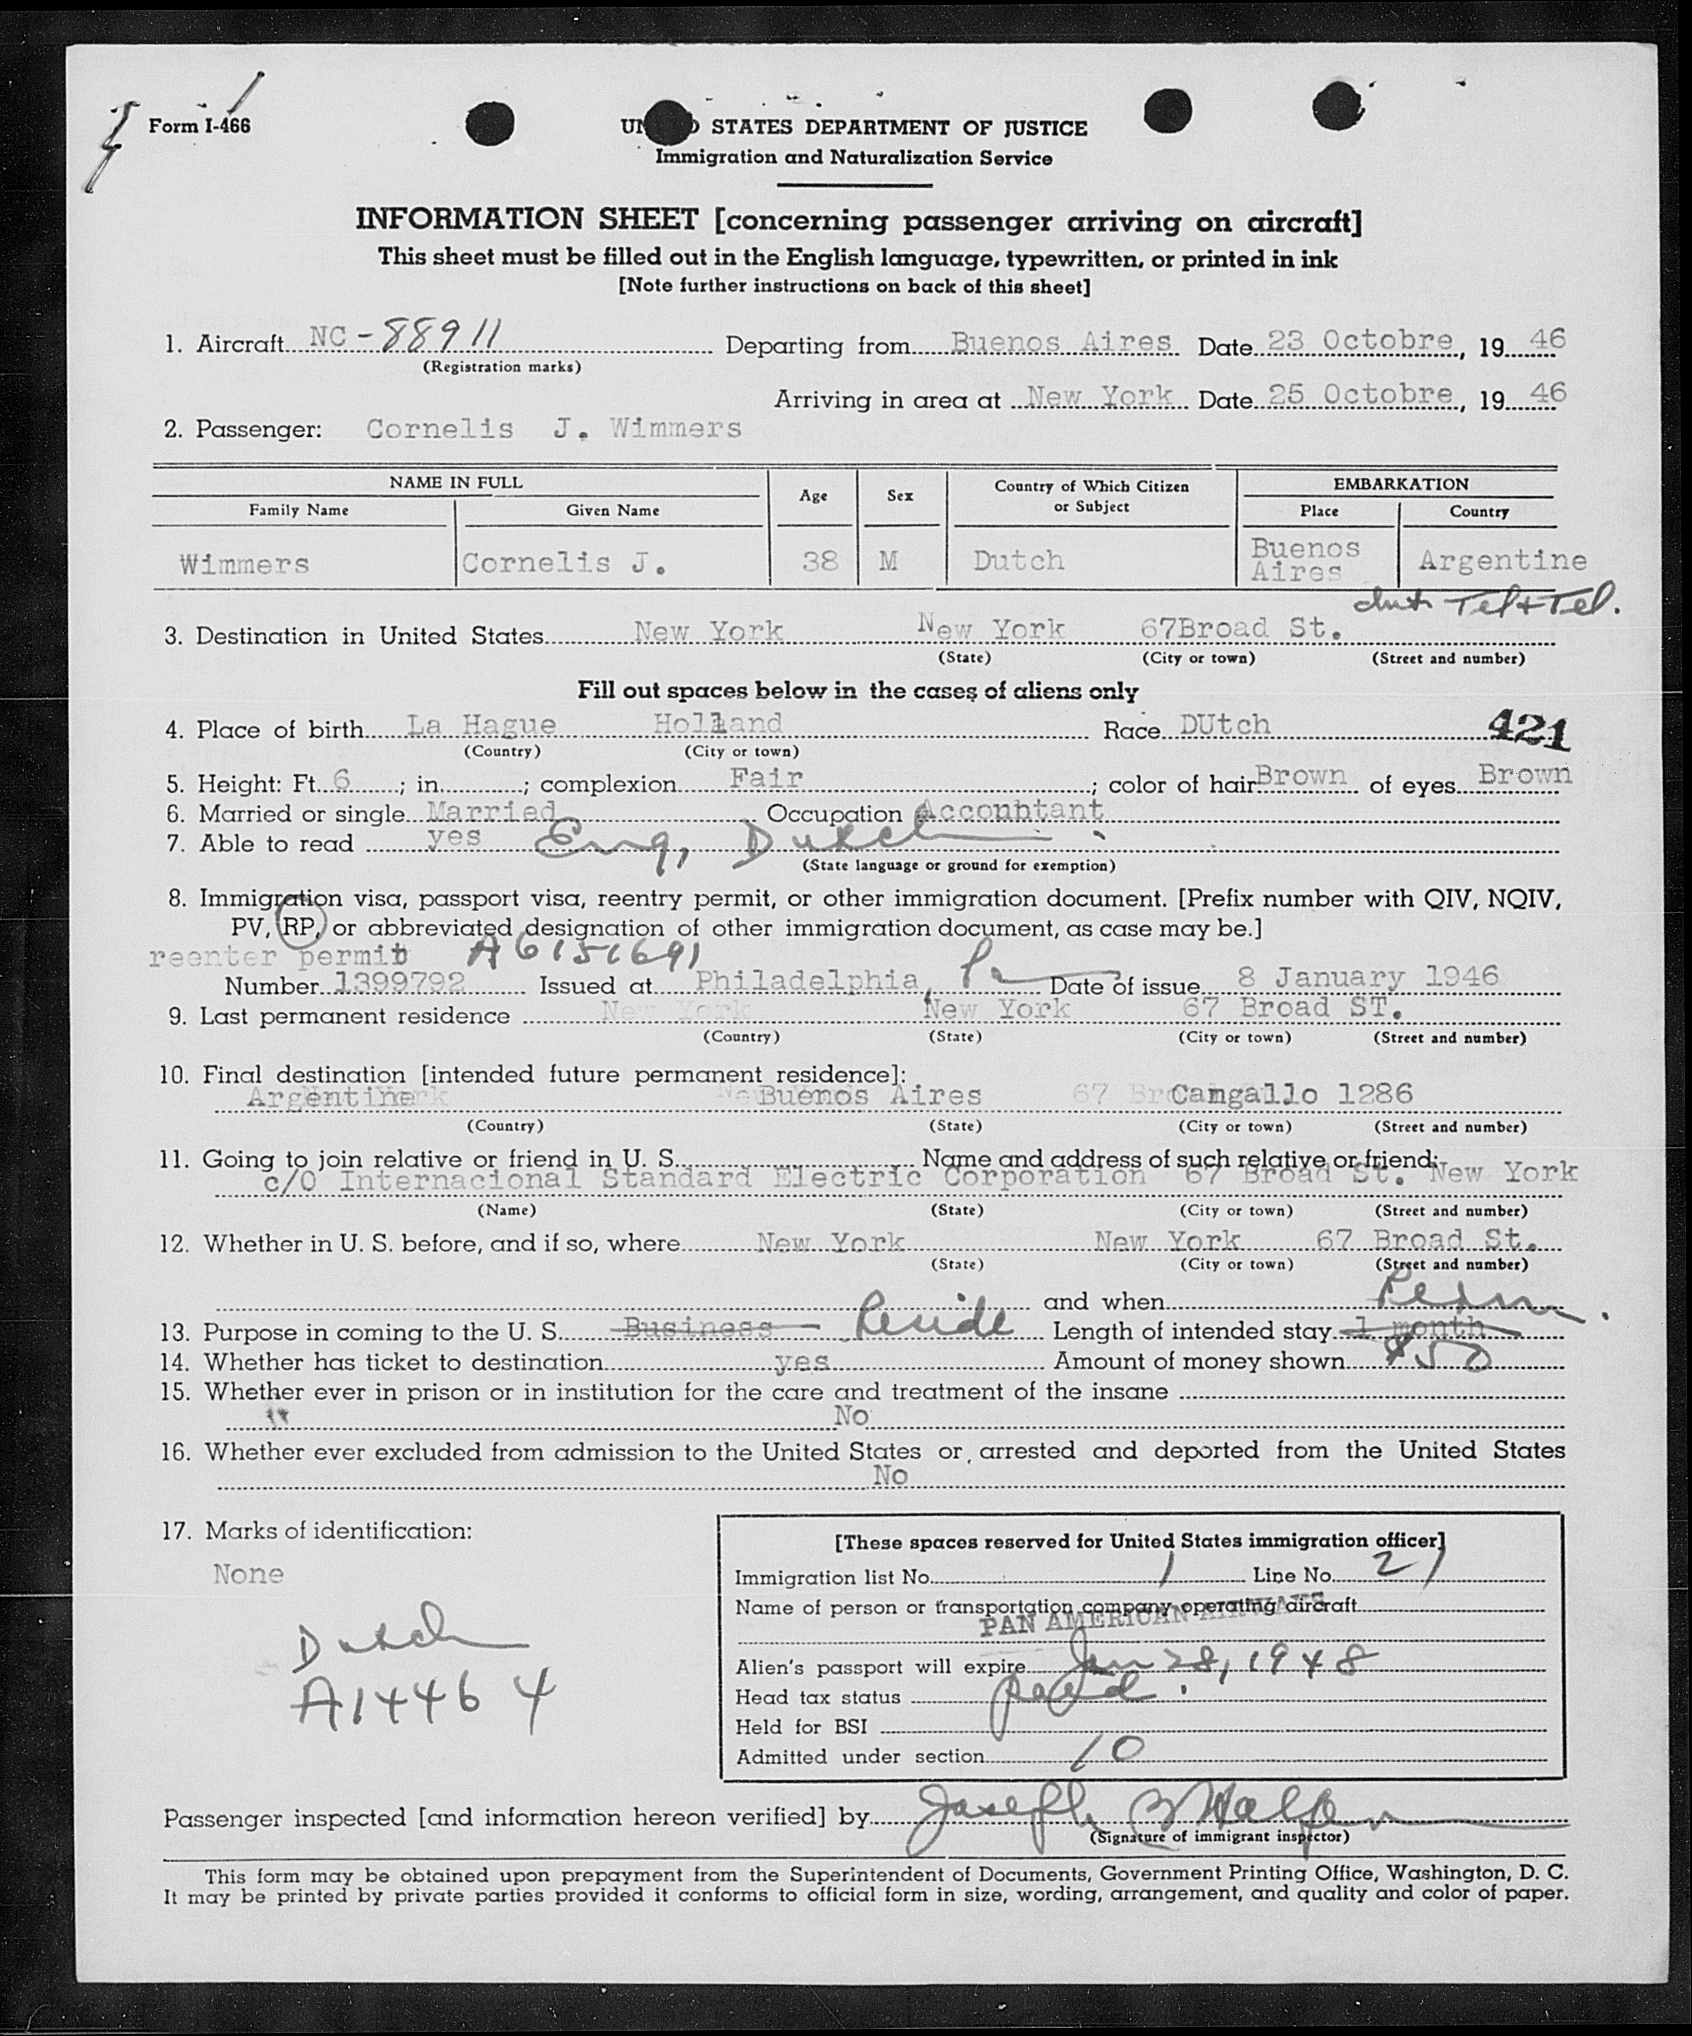 Form I-466
STATES DEPARTMENT OF JUSTICE
Immigration and Naturalization Service
INFORMATION SHEET [concerning passenger arriving on aircraft]
This sheet must be filled out in the English language, typewritten, or printed in ink
[Note further instructions on back of this sheet]
1. Aircraft NC-88911 Departing from Buenos Aires Date 23 Octobre, 19 46
(Registration marks)
Arriving in area at New York Date 25 Octobre, 19 46
2. Passenger: Cornelis J. Wimmers
NAME IN FULL Age Sex Country of Which Citizen or Subject EMBARKATION
Family Name Given Name Place Country
Wimmers Cornelis J. 38 M Dutch Buenos Aires Argentine
Tel & Tel.
3. Destination in United States New York New York 67Broad St.
(State) (City or town) (Street and number)
Fill out spaces below in the cases of aliens only
4. Place of birth La Hague Holland Race DUtch 421
(Country) (City or town)
5. Height: Ft. 6 ; in. ; complexion Fair ; color of hair Brown of eyes Brown
6. Married or single Married Occupation Accountant
7. Able to read yes Eng, Dutch
(State language or ground for exemption)
8. Immigration visa, passport visa, reentry permit, or other immigration document. [Prefix number with QIV, NQIV,
PV, RP, or abbreviated designation of other immigration document, as case may be.]
reenter permit A6151691
Number 1399792 Issued at Philadelphia, Pa Date of issue 8 January 1946
9. Last permanent residence New York New York 67 Broad ST.
(Country) (State) (City or town) (Street and number)
10. Final destination [intended future permanent residence]:
Argentine Buenos Aires Cangallo 1286
(Country) (State) (City or town) (Street and number)
11. Going to join relative or friend in U. S. Name and address of such relative or friend:
c/O Internacional Standard Electric Corporation 67 Broad St. New York
(Name) (State) (City or town) (Street and number)
12. Whether in U. S. before, and if so, where New York New York 67 Broad St.
(State) (City or town) (Street and number)
and when
Perm.
13. Purpose in coming to the U. S. Business Reside Length of intended stay 1 month
14. Whether has ticket to destination yes Amount of money shown $50
15. Whether ever in prison or in institution for the care and treatment of the insane
No
16. Whether ever excluded from admission to the United States or arrested and deported from the United States
No
17. Marks of identification:
None
Dutch
A14464
[These spaces reserved for United States immigration officer]
Immigration list No. 1 Line No. 21
Name of person or transportation company operating aircraft
PAN AMERICAN AIRWAYS
Alien's passport will expire Jan 28, 1948
Head tax status paid.
Held for BSI
Admitted under section 10
Passenger inspected [and information hereon verified] by Joseph B Halpern
(Signature of immigrant inspector)
This form may be obtained upon prepayment from the Superintendent of Documents, Government Printing Office, Washington, D. C.
It may be printed by private parties provided it conforms to official form in size, wording, arrangement, and quality and color of paper.